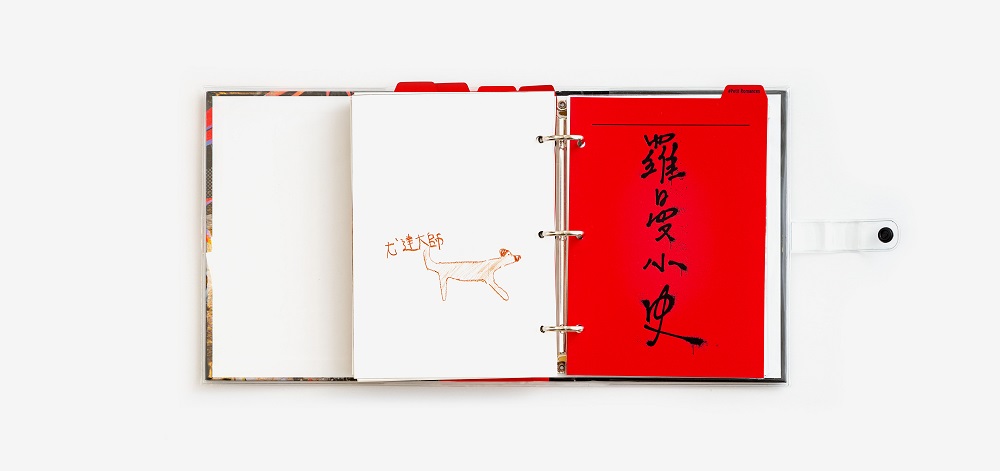 尤達大師
羅曼小史